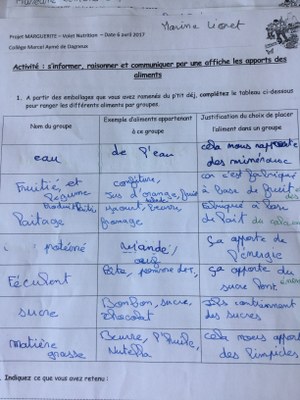 Marina Lioret
Projet MARGUERITE – Volet Nutrition – Date 6 avril 2017
Collège Marcel Aymé de Dagneux
Activité : s'informer, raisonner et communiquer par une affiche les apports des
aliments
1. A partir des emballages que vous avez ramenés du p'tit déj, complétez le tableau ci-dessous
pour ranger les différents aliments par groupes.
Nom du groupe
Exemple d'aliments appartenant
à ce groupe
Justification du choix de placer
l'aliment dans un groupe
eau
de l'eau
cela nous rapporte
des minéraux
Fruits et
légume
confiture,
Jus d'orange, fruit
car c'est fabriqué
à base de fruit
Laitage
yaourt, beurre,
fromage
fabriqué à base
de lait
protéiné
viande,
oeuf
ça apporte de
l'énergie
Féculent
Pâte, pomme de t,
ça apporte du
sucre lent
sucre
Bonbon, sucre,
chocolat
Ils contiennent
des sucres
matière
grasse
Beurre, l'huile,
Nutella
cela nous apport
des limpides
Indiquez ce que vous avez retenu :